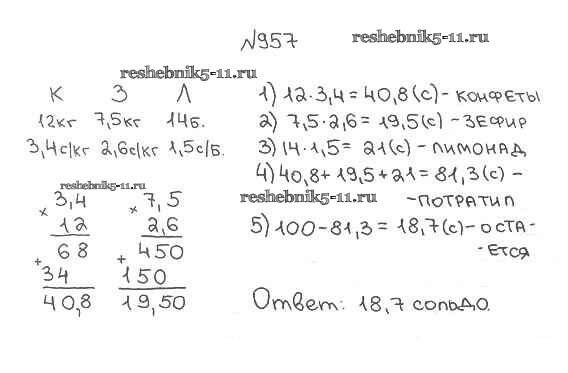 №957
reshebnik5-11.ru
reshebnik5-11.ru
К З Л
12кг 7,5кг 14б.
3,4с/кг 2,6с/кг 1,5с/б.
reshebnik5-11.ru
× 3,4
12
68
+
34
40,8
× 7,5
2,6
450
+
150
19,50
1) 12·3,4 = 40,8 (с) - КОНФЕТЫ
2) 7,5·2,6 = 19,5(с) - ЗЕФИР
3) 14·1,5 = 21(с) - ЛИМОНАД
4) 40,8 + 19,5 + 21 = 81,3 (с) -
reshebnik5-11.ru
-ПОТРАТИЛ
5) 100 - 81,3 = 18,7 (с) - ОСТА-
-ЕТСЯ
Ответ: 18,7 сольдо.